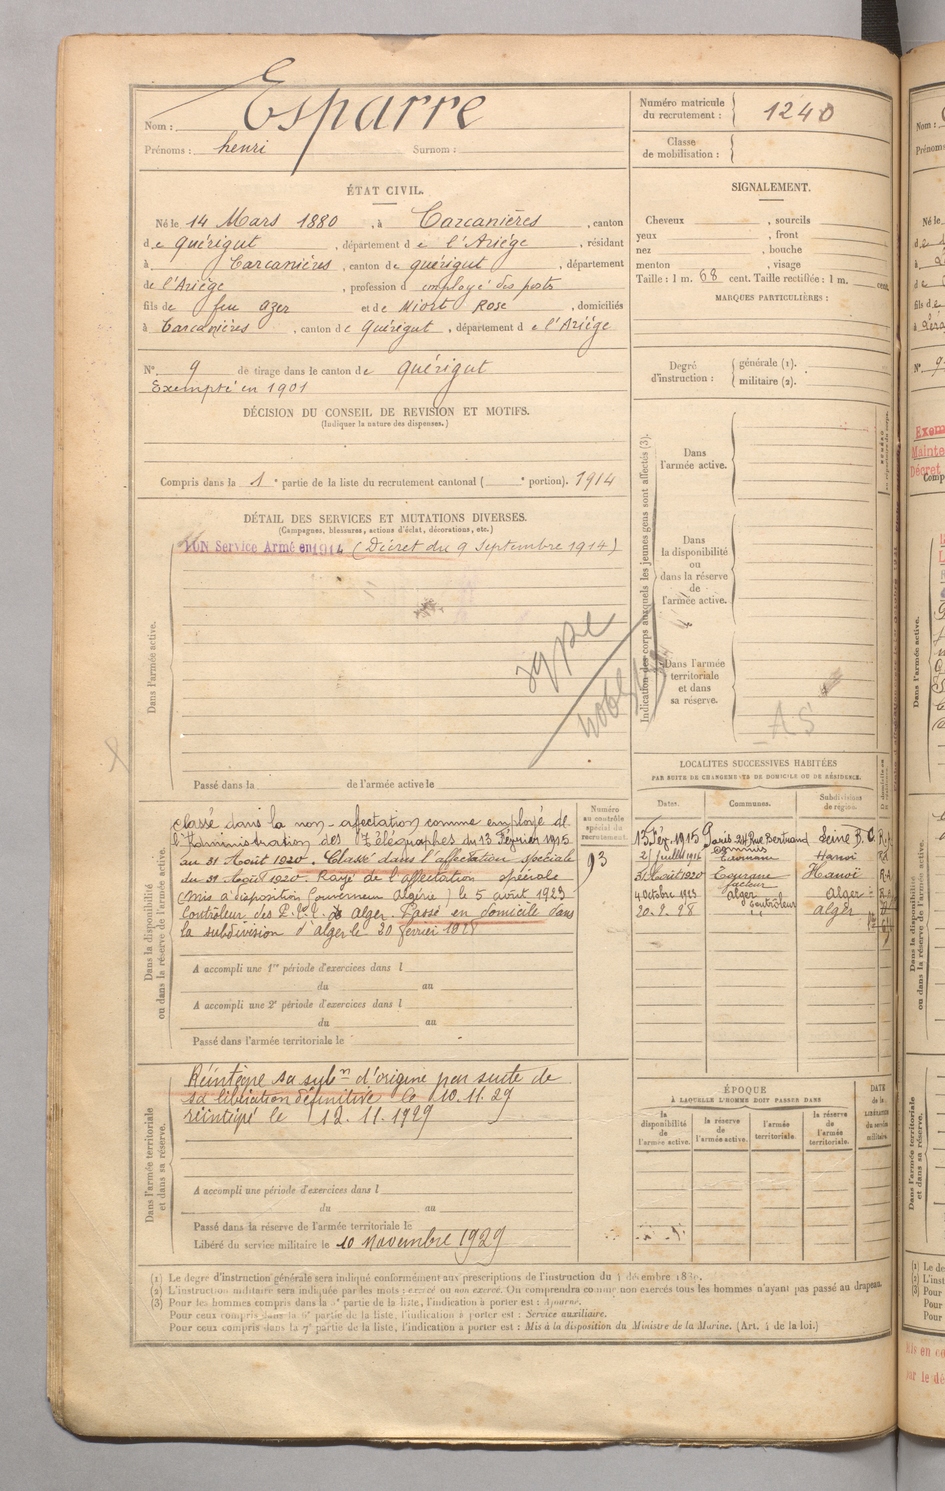 Nom : Esparre
Prénoms : henri Surnom :
Numéro matricule du recrutement : 1240
Classe de mobilisation :
ÉTAT CIVIL.
Né le 14 Mars 1880, à Carcanières, canton
de Quérigut, département de l'Ariège, résidant
à Carcanières, canton de Quérigut, département
de l'Ariège, profession d employé des postes
fils de feu Azer et de Miort Rose, domiciliés
à Carcanières, canton de Quérigut, département de l'Ariège
N° 9 de tirage dans le canton de Quérigut
Exempté en 1901
DÉCISION DU CONSEIL DE REVISION ET MOTIFS.
(Indiquer la nature des dispenses.)
Compris dans la 1e partie de la liste du recrutement cantonal ( e portion). 1914
DÉTAIL DES SERVICES ET MUTATIONS DIVERSES.
(Campagnes, blessures, actions d'éclat, décorations, etc.)
BON Service Armé en 1914 (Décret du 9 Septembre 1914)
Dans l'armée active.
Passé dans la de l'armée active le
Dans la disponibilité ou dans la réserve de l'armée active.
Classé dans la non-affectation comme employé de
l'Administration des Télégraphes du 13 Février 1915
au 31 Août 1920. Classé dans l'affectation spéciale
du 31 Août 1920. Rayé de l'affectation spéciale
(Mis à disposition Gouverneur Algérie) le 5 août 1923
Contrôleur des P.T.T. à Alger. Passé en domicile dans
la subdivision d'Alger le 20 février 1928
Numéro au contrôle spécial du recrutement.
93
A accompli une 1re période d'exercices dans l
du au
A accompli une 2e période d'exercices dans l
du au
Passé dans l'armée territoriale le
Dans l'armée territoriale et dans sa réserve.
Réintègre sa subon d'origine par suite de
sa libération définitive le 10.11.29
réintégré le 12.11.1929
A accompli une période d'exercices dans l
du au
Passé dans la réserve de l'armée territoriale le
Libéré du service militaire le 10 Novembre 1929
SIGNALEMENT.
Cheveux , sourcils
yeux , front
nez , bouche
menton , visage
Taille : 1 m. 68 cent. Taille rectifiée : 1 m. cent.
MARQUES PARTICULIÈRES :
Degré d'instruction : générale (1).
militaire (2).
Indication des corps auxquels les jeunes gens sont affectés (3).
Dans l'armée active.
Dans la disponibilité ou dans la réserve de l'armée active.
Dans l'armée territoriale et dans sa réserve.
AS
LOCALITÉS SUCCESSIVES HABITÉES
PAR SUITE DE CHANGEMENTS DE DOMICILE OU DE RÉSIDENCE.
Dates. Communes. Subdivisions de région.
13 Fév. 1915 Paris 24 Rue Bertrand Seine
Commis
Hanoï
31 Août 1920 Hanoï
facteur
4 Octobre 1923 Alger Alger
contrôleur
20.2.28 " Alger
ÉPOQUE
À LAQUELLE L'HOMME DOIT PASSER DANS
la disponibilité de l'armée active.
la réserve de l'armée active.
l'armée territoriale.
la réserve de l'armée territoriale.
DATE de la LIBÉRATION du service militaire.
(1) Le degré d'instruction générale sera indiqué conformément aux prescriptions de l'instruction du décembre
(2) L'instruction militaire sera indiquée par les mots : exercé ou non exercé. On comprendra comme non exercés tous les hommes n'ayant pas passé au drapeau.
(3) Pour les hommes compris dans la partie de la liste, l'indication à porter est : Ajourné.
Pour ceux compris dans la 6e partie de la liste, l'indication à porter est : Service auxiliaire.
Pour ceux compris dans la 7e partie de la liste, l'indication à porter est : Mis à la disposition du Ministre de la Marine. (Art. 4 de la loi.)